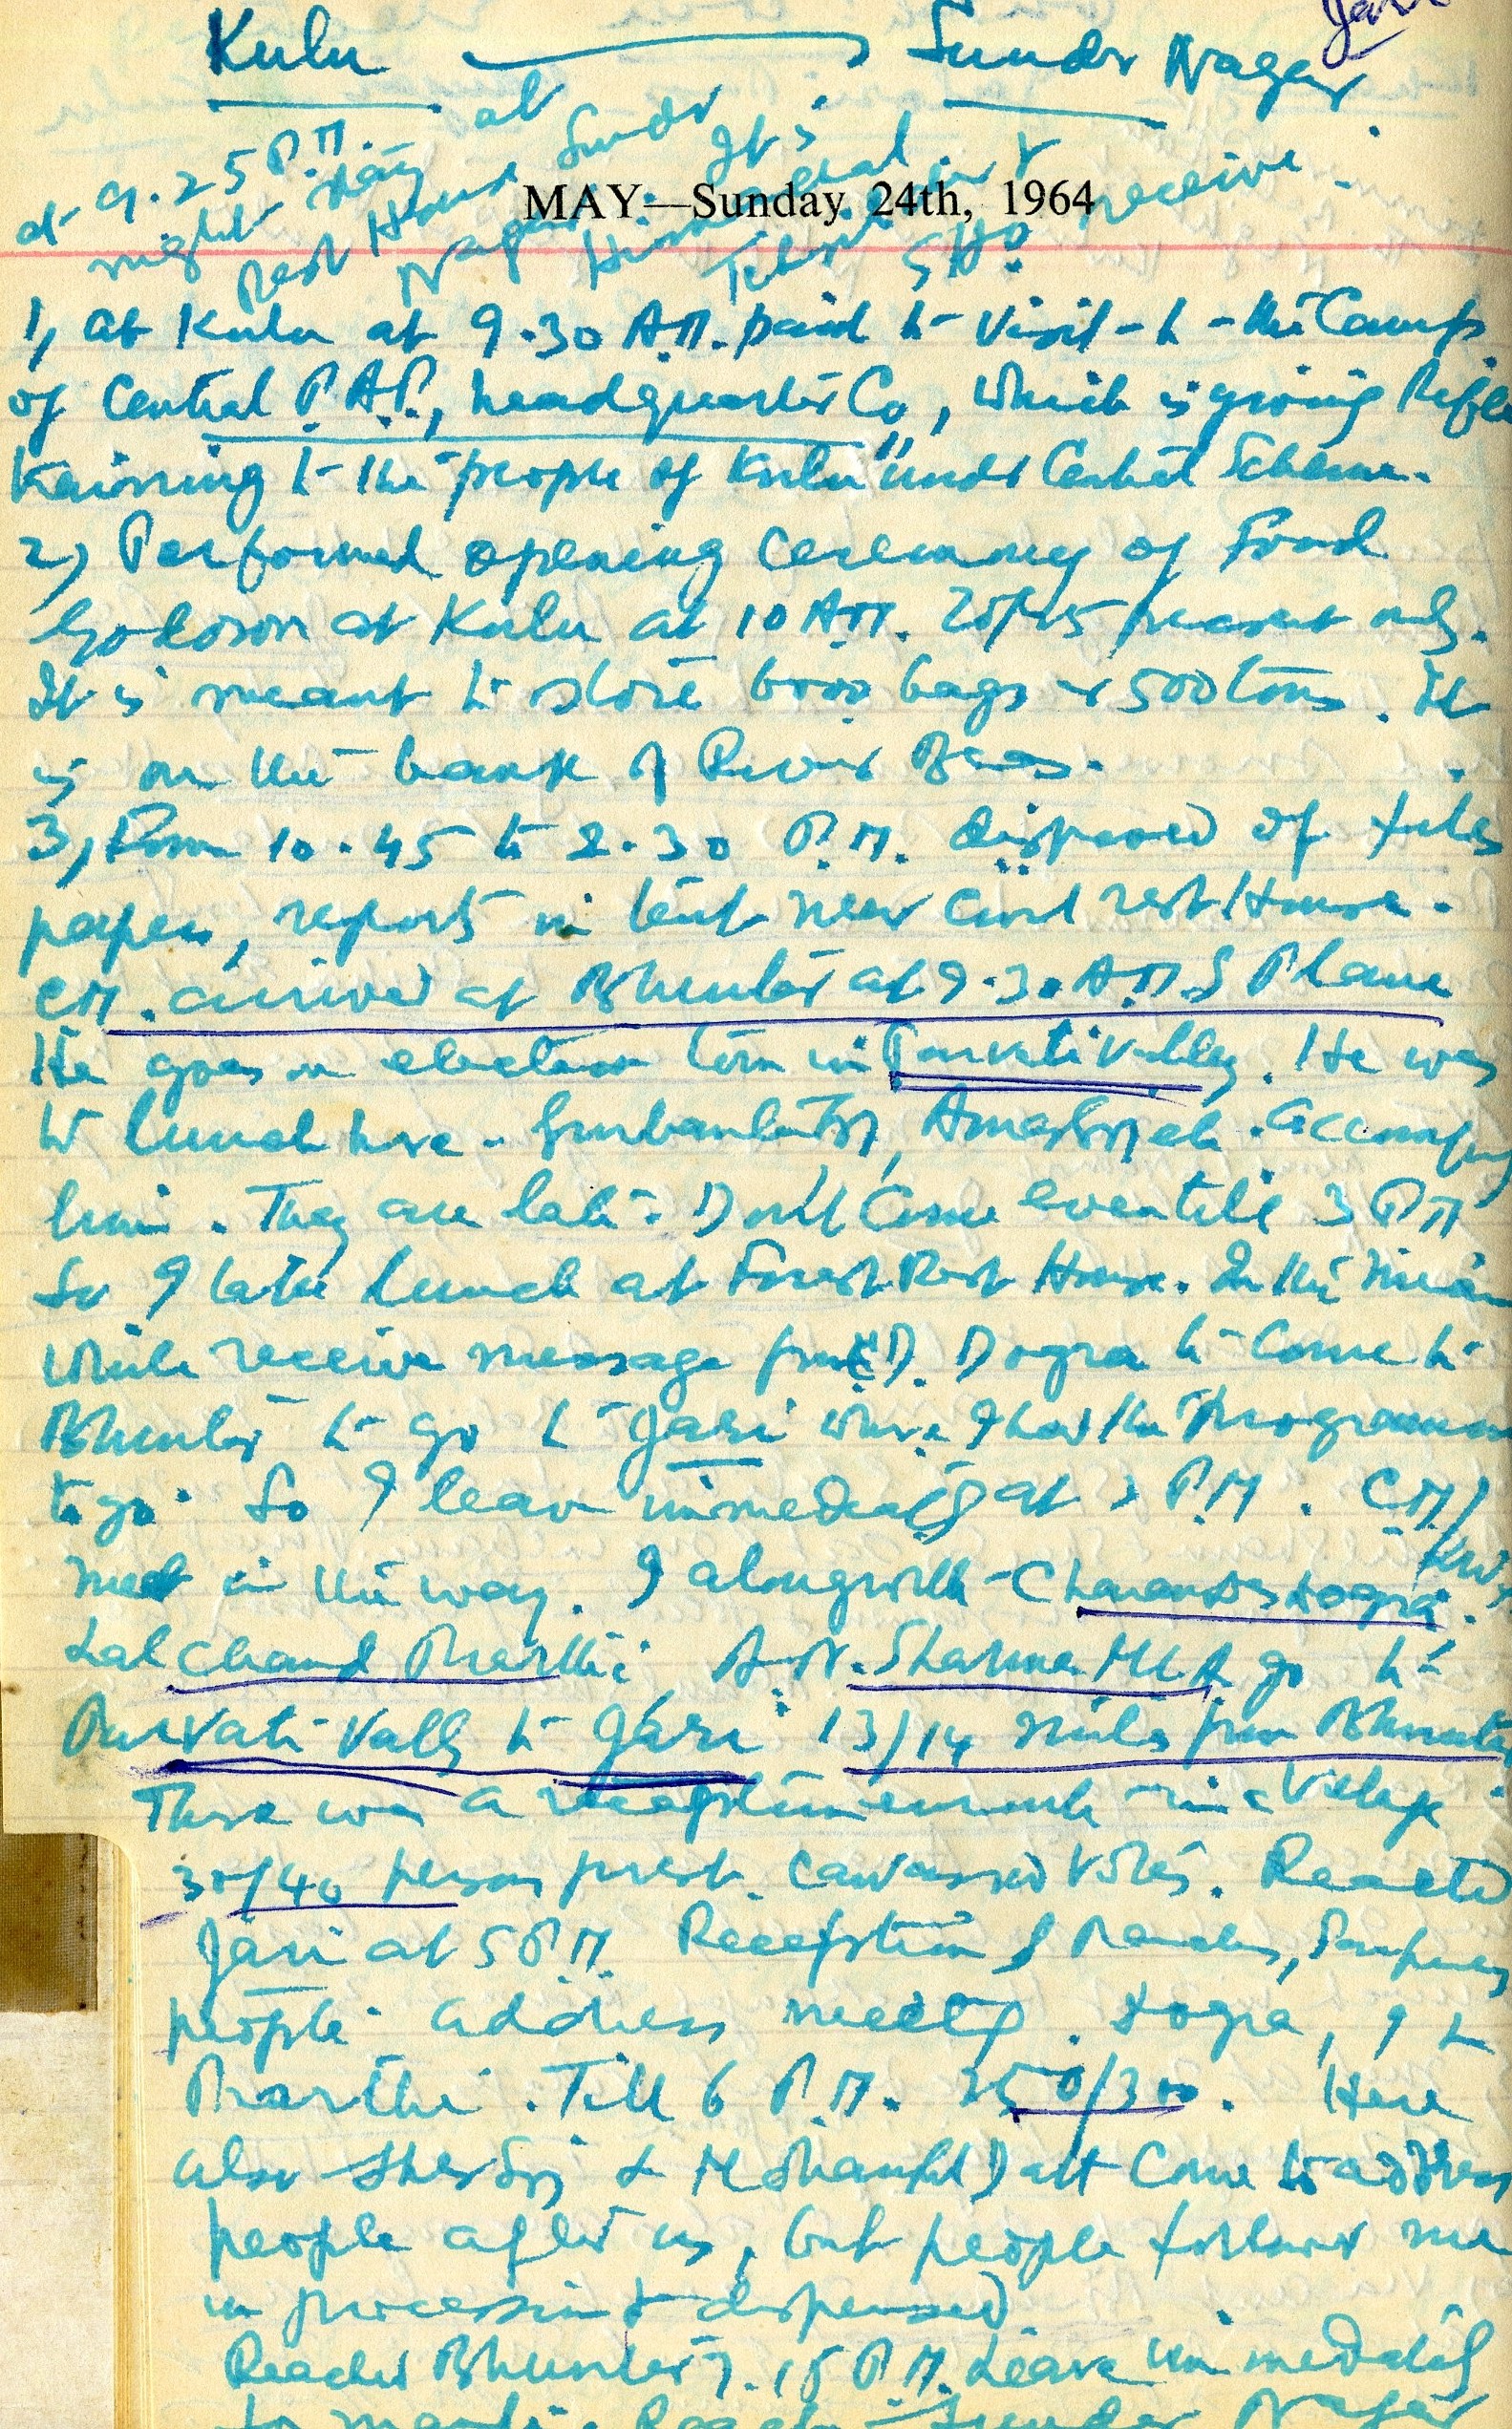 Jari
Kulu → Sunder Nagar
at 9.25 P.M. at
night stay
Rest House Sunder
Nagar. It is
Himachal
Tehsildar &
SHO receive.
MAY—Sunday 24th, 1964
1) at Kulu at 9.30 A.M. paid to visit to the Camp
of Central P.A.P., headquarter Co, which is giving Rifle
training to the people of Kulu under Central Scheme.
2) Performed opening ceremony of Food
Godown at Kulu at 10 A.M. present only.
It is meant to store 6000 bags or 500 tons. It
is on the bank of River Beas.
3) From 10.45 to 2.30 P.M. disposed of files
papers, reports in tent near Civil rest House.
C.M. arrived at Bhunter at 9.30 A.M. by Plane
He goes on election tour in Parvati Valley. He was
to lunch here. Gurbanta Singh, Amar Singh etc. accompany
him. They are late. Don't come even till 3 P.M
So I take lunch at Forest Rest House. In the mean
while receive message from C.D. Dogra to come to
Bhunter to go to Jari where I had the programme
to go. So I leave immediately at 3 P.M. C.M.
met in the way. I alongwith Charandas Dogra.
Lal Chand Prarthi A.N. Sharma MLA go to
Parvati Valley to Jari 13/14 miles from Bhunter
There was a reception enroute in a Village
30/40 persons present. Canvassed Votes. Reached
Jari at 5 P.M. Reception by Panches, Sarpanches
people address meeting. Dogra, I &
Prarthi. Till 6 P.M. 250/300. Here
also Sher Singh & Datt come to address
people after us, but people follow me
in procession & dispersed
Reached Bhunter 7.15 P.M. Leave immediately
to Mandi. Reach Sunder Nagar